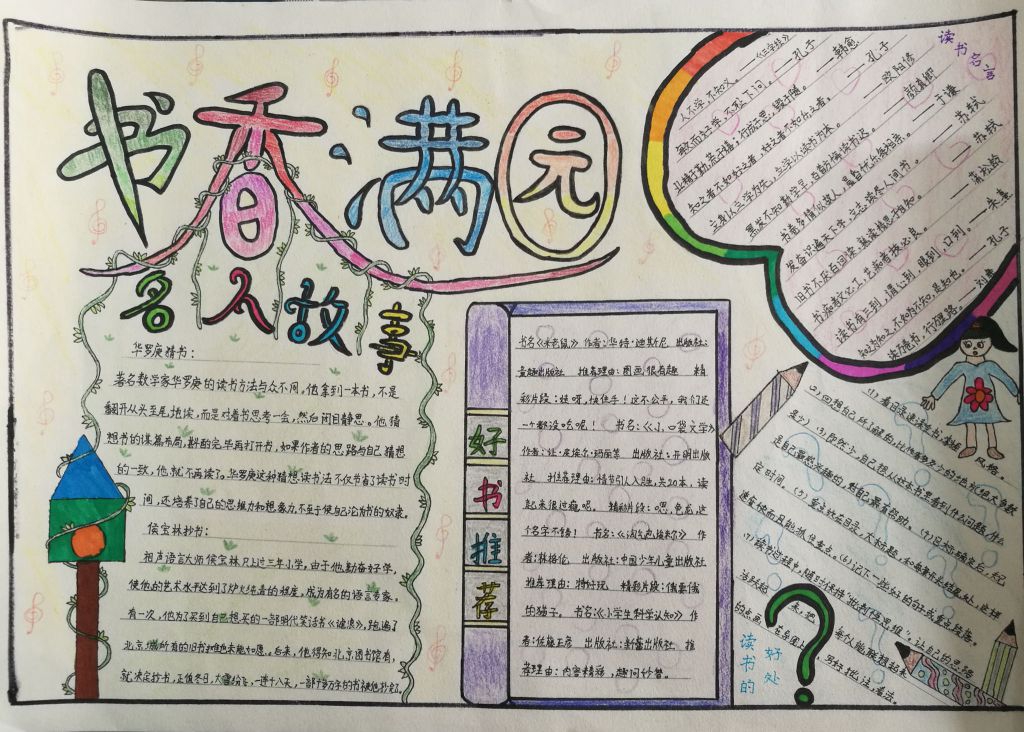 书香满园
名人故事
华罗庚猜书：
著名数学家华罗庚的读书方法与众不同。他拿到一本书，不是
翻开从头至尾地读，而是对着书思考一会，然后闭目静思。他猜
想书的谋篇布局，斟酌完毕再打开书，如果作者的思路与自己猜想
的一致，他就不再读了。华罗庚这种猜想读书法不仅节省了读书时
间，还培养了自己的思维力和想象力，不至于使自己沦为书的奴隶。
侯宝林抄书：
相声语言大师侯宝林只上过三年小学，由于他勤奋好学，
使他的艺术水平达到了炉火纯青的程度，成为有名的语言专家。
有一次，他为了买到自己想买的一部明代笑话书《谑浪》，跑遍了
北京城所有的旧书摊也未能如愿。后来，他得知北京图书馆有，
就决定抄书，正值冬日，大雪纷飞，一连十八天，一部十多万字的书被他抄好了。
好书推荐
书名《米老鼠》 作者：华特·迪斯尼 出版社：
童趣出版社 推荐理由：图画很有趣 精
彩片段：哇呀，快住手！这不公平，我们还
一个都没吃呢！ 书名：《小口袋文学》
出版社：开明出版
社 推荐理由：情节引人入胜，共20本，读
起来很过瘾吧。 精彩片段：嗯，色龙，这
个名字不错！ 书名：《淘气包埃米尔》 作
者：林格伦 出版社：中国少年儿童出版社
推荐理由：特好玩 精彩片段：
的猫子。 书名：《小学生科学认知》 作
者：佐藤正彦 出版社：新蕾出版社 推
荐理由：内容精彩，趣问妙答。
读书名言
人不学，不知义。——《三字经》
敏而好学，不耻下问。——孔子
业精于勤荒于嬉，行成于思，毁于随。——韩愈
知之者不如好之者，好之者不如乐之者。——孔子
立身以立学为先，立学以读书为本。——欧阳修
黑发不知勤学早，白首方悔读书迟。——颜真卿
书卷多情似故人，晨昏忧乐每相亲。——于谦
发奋识遍天下字，立志读尽人间书。——苏轼
旧书不厌百回读，熟读精思子自知。——苏轼
书痴者文必工，艺痴者技必良。——蒲松龄
读书有三到，心到，眼到，口到。——朱熹
知之为知之，不知为不知，是知也。——孔子
读万卷书，行万里路。——刘彝
风格
读书的好处
(1)看目录速读全书，掌握
(2)回想自己所了解的
(3)
是自己最感兴趣的，对自己最有帮助。
定时间。(5)
速看快而且能抓住重点。(6)记下一些好的句子或重点段落。
(7)读书过程中，随时保持“批判性思维”。让自己的思路
写好批注，看法。